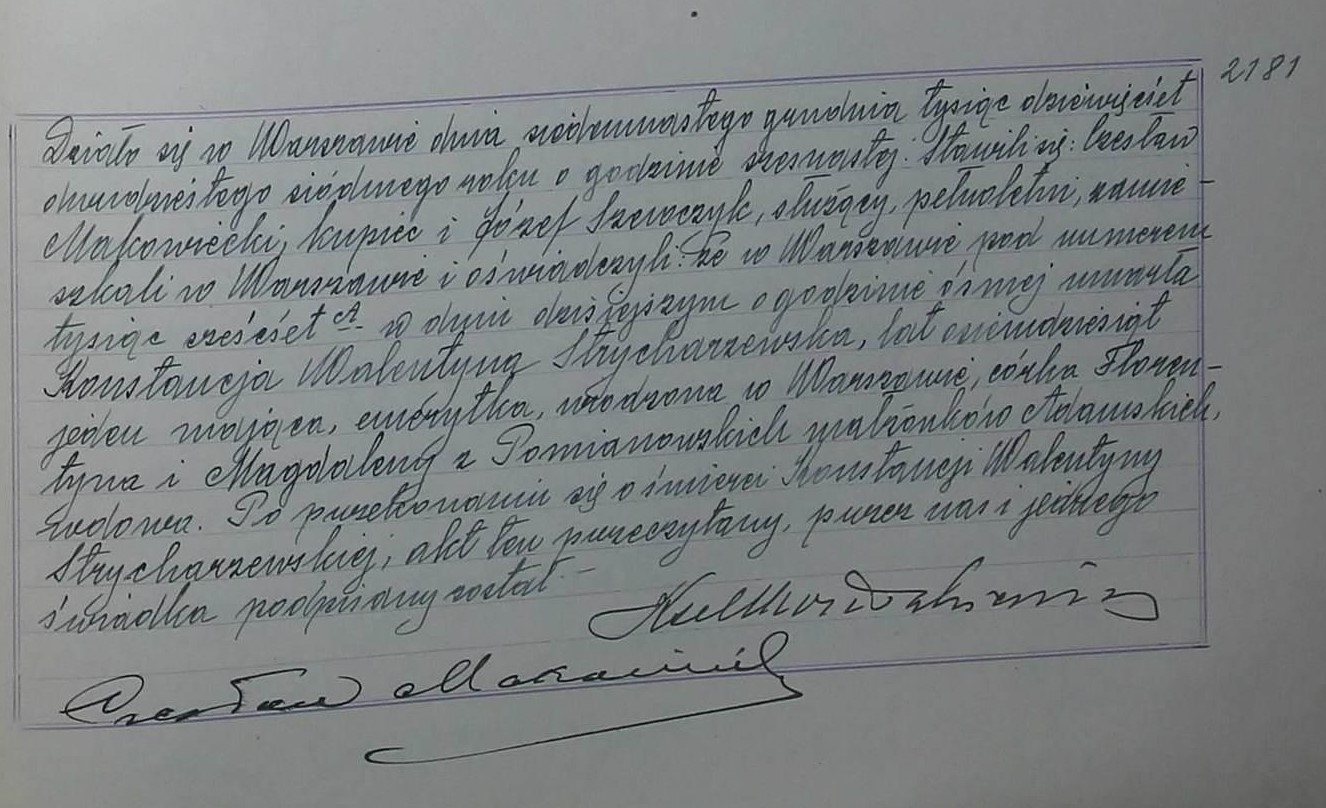 2181
Działo się w Warszawie dnia siedemnastego grudnia tysiąc dziewięćset
dwudziestego siódmego roku o godzinie szesnastej. Stawili się: Czesław
Makowiecki, kupiec i Józef Szewczyk, służący, pełnoletni, zamie-
szkali w Warszawie i oświadczyli: że w Warszawie pod numerem
tysiąc sześćset A. w dniu dzisiejszym o godzinie ósmej umarła
Konstancja Walentyna Strycharzewska, lat osiemdziesiąt
jeden mająca, emerytka, urodzona w Warszawie, córka Floren-
tyna i Magdaleny z Pomianowskich małżonków Adamskich,
wdowa. Po przekonaniu się o śmierci Konstancji Walentyny
Strycharzewskiej, akt ten przeczytany, przez nas i jednego
świadka podpisany został –
Czesław Makowiecki